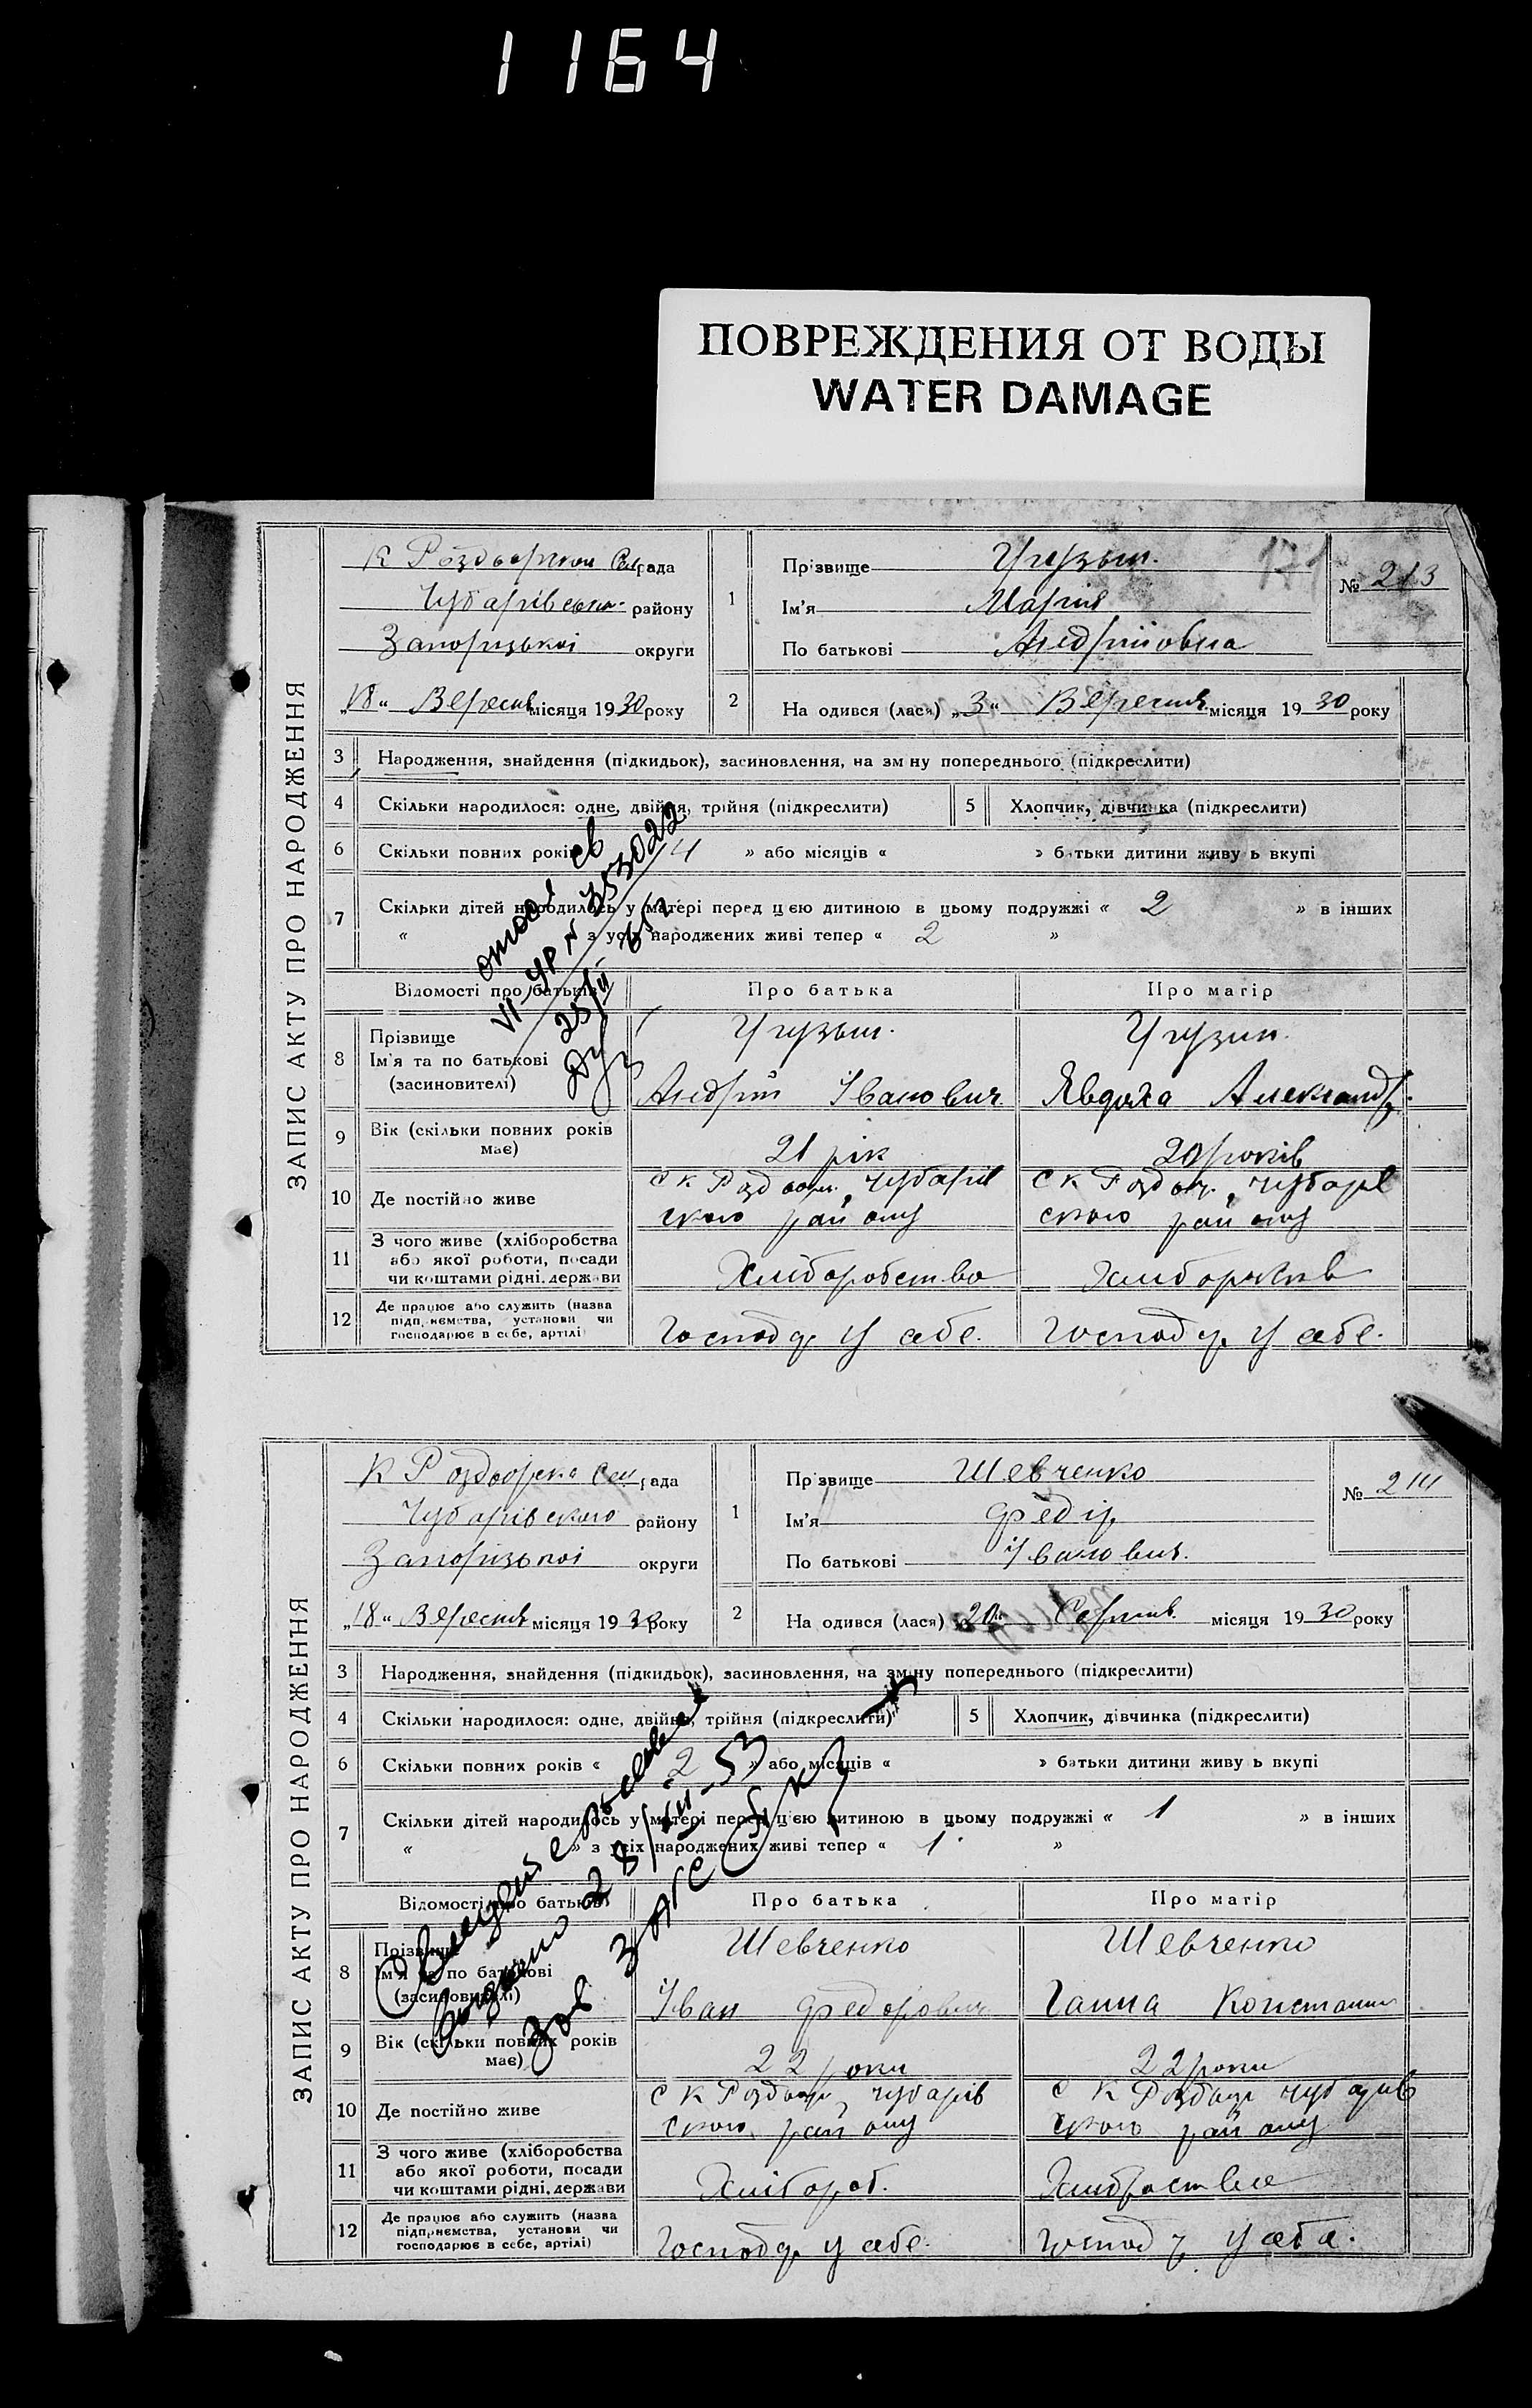 1164
ПОВРЕЖДЕНИЯ ОТ ВОДЫ
WATER DAMAGE
ЗАПИС АКТУ ПРО НАРОДЖЕННЯ
К Роздорська Сел рада
Чубарівськ. району
Запоризькоі округи
„18“ Вересня місяця 1930 року
1
Прізвище
Ім'я Марія
По батькові Андріівна
171
№ 213
2
На одився (лася) „3“ Вересня місяця 1930 року
3 Народження, знайдення (підкидьок), засиновлення, на зм ну попереднього (підкреслити)
4 Скільки народилося: одне, двійня, трійня (підкреслити)
5 Хлопчик, дівчинка (підкреслити)
6 Скільки повних років 4 » або місяців « » батьки дитини живу ь вкупі
7 Скільки дітей народилось у матері перед цією дитиною в цьому подружжі « 2 » в інших
« » з усіх народжених живі тепер « 2 »
Відомості про батьків
Про батька
Про матір
8 Прізвище
Ім'я та по батькові
(засиновителі)
Андрій Іванович
Явдоха Александр.
9 Вік (скільки повних років має)
21 рік
20 років
10 Де постійно живе
с К Роздори, Чубарів
ського району
с К Роздор., Чубарів
ського району
11 З чого живе (хліборобства
або якої роботи, посади
чи коштами рідні, держави
Хліборобство
12 Де працює або служить (назва
підприємства, установи чи
господарює в себе, артілі)
Господр у себе.
Господр у себе.
VI УР № 353022
ЗАПИС АКТУ ПРО НАРОДЖЕННЯ
К Роздорска Сел рада
Чубарівського району
Запоризькоі округи
„18“ Вересня місяця 1930 року
1
Прізвище Шевченко
Ім'я Федір
По батькові Іванович.
№ 214
2
На одився (лася) „20“ Серпня місяця 1930 року
3 Народження, знайдення (підкидьок), засиновлення, на зміну попереднього (підкреслити)
4 Скільки народилося: одне, двійня, трійня (підкреслити)
5 Хлопчик, дівчинка (підкреслити)
6 Скільки повних років « 2 » або місяців « » батьки дитини живу ь вкупі
7 Скільки дітей народилось у матері перед цією дитиною в цьому подружжі « 1 » в інших
« » з усіх народжених живі тепер « 1 »
Відомості про батьків
Про батька
Про матір
8 Прізвище
Ім'я та по батькові
(засиновителі)
Шевченко
Іван Федорович
Шевченко
Ганна Констант
9 Вік (скільки повних років має)
22 роки
22 роки
10 Де постійно живе
с К Роздори, Чубарів
ського району
с К Роздори Чубарів
ського району
11 З чого живе (хліборобства
або якої роботи, посади
чи коштами рідні, держави
Хлібороб.
12 Де працює або служить (назва
підприємства, установи чи
господарює в себе, артілі)
Господр у себе.
Господр у себе.
28/XII-53
Зав ЗАГС